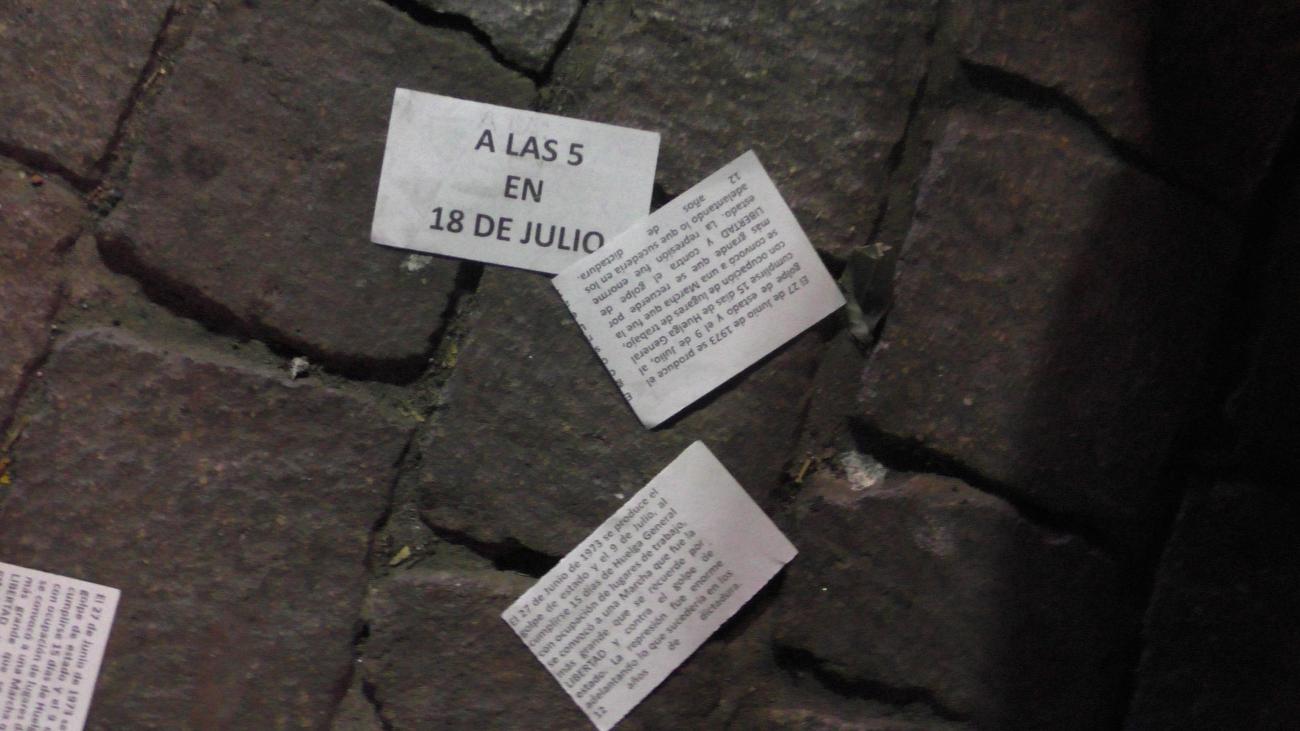 A LAS 5
EN
18 DE JULIO
El 27 de Junio de 1973 se produce el
golpe de estado y el 9 de Julio, al
cumplirse 15 días de Huelga General
con ocupación de lugares de trabajo,
se convocó a una Marcha que fue la
más grande que se recuerde por
LIBERTAD y contra el golpe de
estado. La represión fue enorme
adelantando lo que sucedería en los
12 años de dictadura.
El 27 de Junio de 1973 se produce el
golpe de estado y el 9 de Julio, al
cumplirse 15 días de Huelga General
con ocupación de lugares de trabajo,
se convocó a una Marcha que fue la
más grande que se recuerde por
LIBERTAD y contra el golpe de
estado. La represión fue enorme
adelantando lo que sucedería en los
12 años de dictadura.
El 27 de Junio de 1973 se
golpe de estado y el 9
cumplirse 15 días de Huelg
con ocupación de lugares d
se convocó a una Marcha q
más grande que se
LIBERTAD